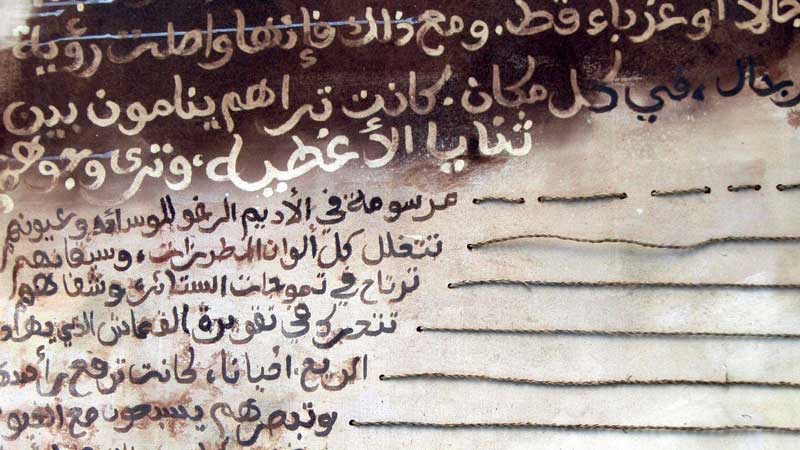 أو غرباء قط. ومع ذلك فإنها واصلت رؤية
في كل مكان. كانت تراهم ينامون بين
ثنايا الأغطية، وترى وجوههم
مرسومة في الأديم الرخو للوسائد، وعيونهم
تتخلل كل ألوان المطرزات، وسيقانهم
ترتاح في تموجات الستائر، وشفاههم
تتحرك في تقويرة القماش الذي
الريح أحيانا، كانت ترفع رأ
وتبصرهم يسبحون مع